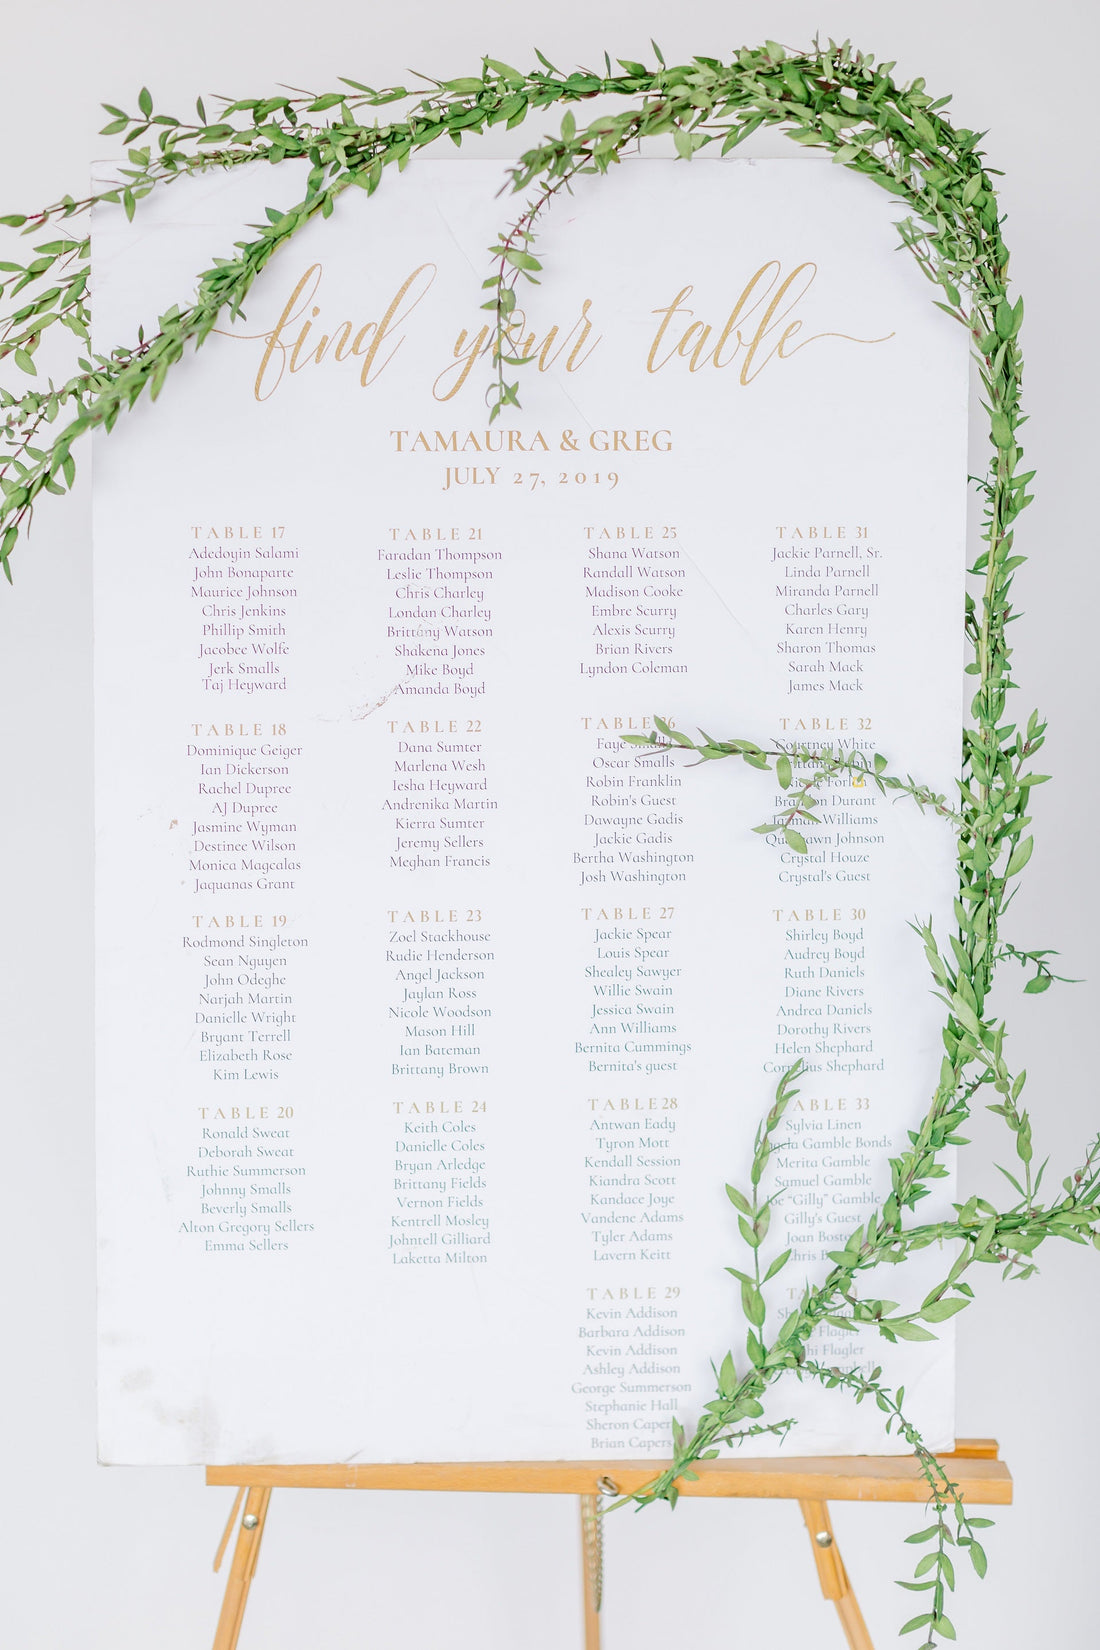 find your table
TAMAURA & GREG
JULY 27, 2019
TABLE 17
Adedoyin Salami
John Bonaparte
Maurice Johnson
Chris Jenkins
Phillip Smith
Jacobee Wolfe
Jerk Smalls
Taj Heyward
TABLE 18
Dominique Geiger
Ian Dickerson
Rachel Dupree
AJ Dupree
Jasmine Wyman
Destinee Wilson
Monica Magcalas
Jaquanas Grant
TABLE 19
Rodmond Singleton
Sean Nguyen
John Odeghe
Narjah Martin
Danielle Wright
Bryant Terrell
Elizabeth Rose
Kim Lewis
TABLE 20
Ronald Sweat
Deborah Sweat
Ruthie Summerson
Johnny Smalls
Beverly Smalls
Alton Gregory Sellers
Emma Sellers
TABLE 21
Faradan Thompson
Leslie Thompson
Chris Charley
Londan Charley
Brittany Watson
Shakena Jones
Mike Boyd
Amanda Boyd
TABLE 22
Dana Sumter
Marlena Wesh
Iesha Heyward
Andrenika Martin
Kierra Sumter
Jeremy Sellers
Meghan Francis
TABLE 23
Zoel Stackhouse
Rudie Henderson
Angel Jackson
Jaylan Ross
Nicole Woodson
Mason Hill
Ian Bateman
Brittany Brown
TABLE 24
Keith Coles
Danielle Coles
Bryan Arledge
Brittany Fields
Vernon Fields
Kentrell Mosley
Johntell Gilliard
Laketta Milton
TABLE 25
Shana Watson
Randall Watson
Madison Cooke
Embre Scurry
Alexis Scurry
Brian Rivers
Lyndon Coleman
TABLE 26
Faye Smalls
Oscar Smalls
Robin Franklin
Robin's Guest
Dawayne Gadis
Jackie Gadis
Bertha Washington
Josh Washington
TABLE 27
Jackie Spear
Louis Spear
Shealey Sawyer
Willie Swain
Jessica Swain
Ann Williams
Bernita Cummings
Bernita's guest
TABLE 28
Antwan Eady
Tyron Mott
Kendall Session
Kiandra Scott
Kandace Joye
Vandene Adams
Tyler Adams
Lavern Keitt
TABLE 29
Kevin Addison
Barbara Addison
Kevin Addison
Ashley Addison
George Summerson
Stephanie Hall
Sheron Capers
Brian Capers
TABLE 31
Jackie Parnell, Sr.
Linda Parnell
Miranda Parnell
Charles Gary
Karen Henry
Sharon Thomas
Sarah Mack
James Mack
TABLE 32
Courtney White
Brandon Durant
Williams
Johnson
Crystal Houze
Crystal's Guest
TABLE 30
Shirley Boyd
Audrey Boyd
Ruth Daniels
Diane Rivers
Andrea Daniels
Dorothy Rivers
Helen Shephard
Cornelius Shephard
TABLE 33
Sylvia Linen
Gamble Bonds
Merita Gamble
Samuel Gamble
Joe “Gilly” Gamble
Gilly's Guest
Joan
Chris
Flagler
Flagler